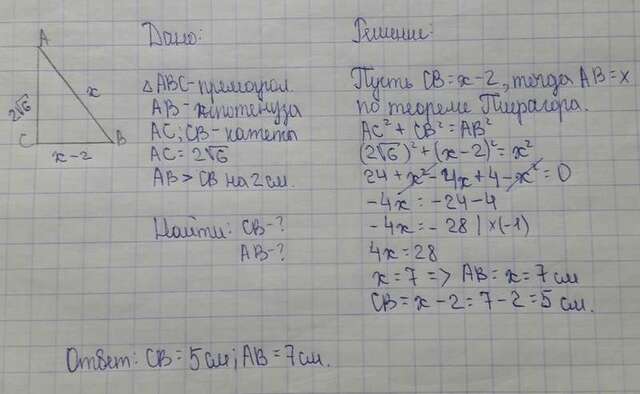 A
2√6
x
C
x-2
B
Дано:
△ABC-прямоугол.
AB-гипотенуза
AC; CB-катеты
AC=2√6
AB>CB на 2 см.
Найти: CB-?
AB-?
Решение:
Пусть CB=x-2, тогда AB=x
по теореме Пифагора.
AC²+CB²=AB²
(2√6)²+(x-2)²=x²
24+x²-4x+4-x²=0
-4x=-24-4
-4x=-28 | ×(-1)
4x=28
x=7 => AB=x=7 см
CB=x-2=7-2=5 см.
Ответ: CB=5 см; AB=7 см.